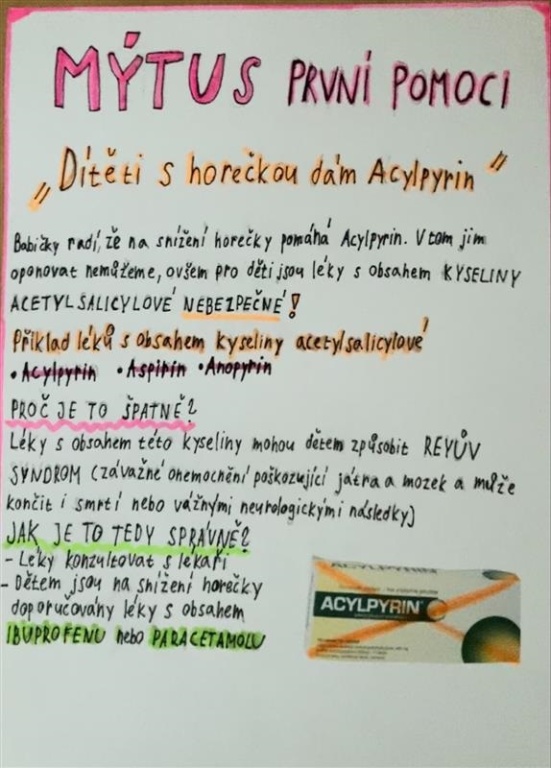 MÝTUS PRVNÍ POMOCI
„Dítěti s horečkou dám Acylpyrin"
Babičky radí, že na snížení horečky pomáhá Acylpyrin. V tom jim
oponovat nemůžeme, ovšem pro děti jsou léky s obsahem KYSELINY
ACETYLSALICYLOVÉ NEBEZPEČNÉ!
Příklad léků s obsahem kyseliny acetylsalicylové
• Acylpyrin • Aspirin • Anopyrin
PROČ JE TO ŠPATNĚ?
Léky s obsahem této kyseliny mohou dětem způsobit REYŮV
SYNDROM (závažné onemocnění poškozující játra a mozek a může
končit i smrtí nebo vážnými neurologickými následky)
JAK JE TO TEDY SPRÁVNĚ?
- Léky konzultovat s lékaři
- Dětem jsou na snížení horečky
doporučovány léky s obsahem
IBUPROFENU nebo PARACETAMOLU
ACYLPYRIN
ACYLPYRIN